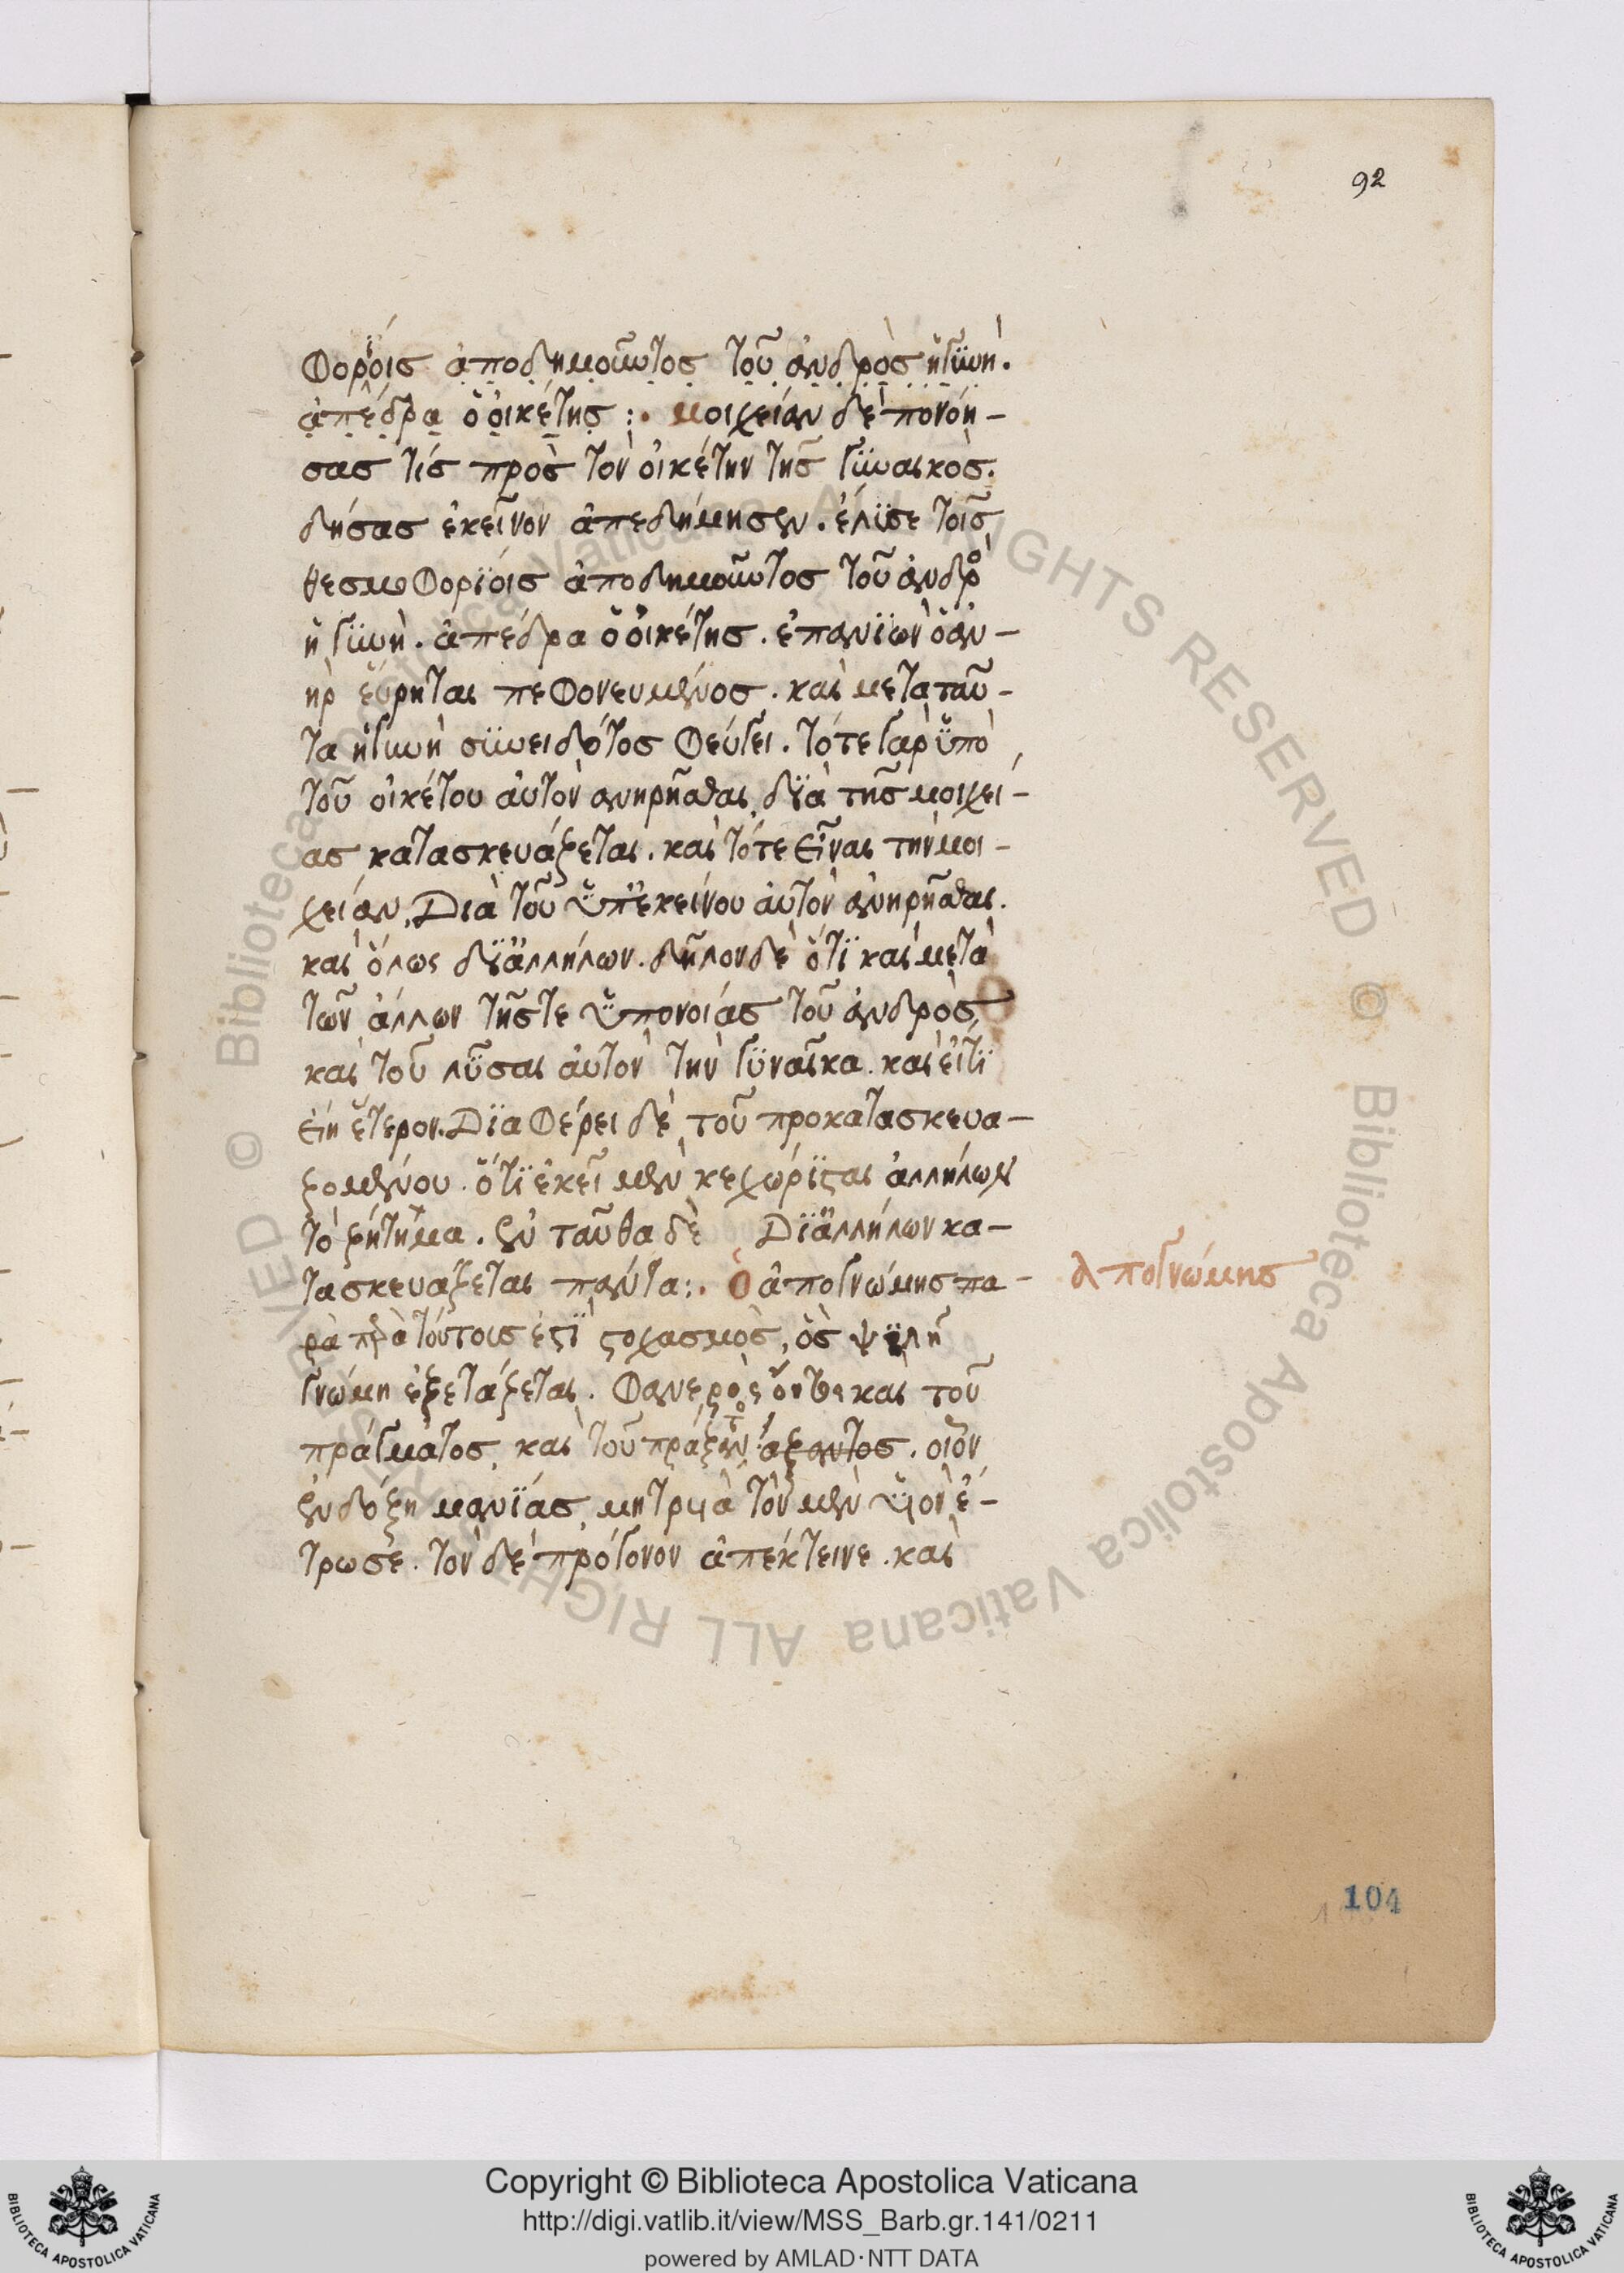 92
φορΐοις ἀποδημοῦντος τοῦ ἀνδρὸς ἡ γϋνή.
ἀπέδρα ὁ οἰκέτης :· μοιχείαν δὲ πονοή-
σας τίς πρὸς τὸν οἰκέτην τῆς γϋναικός.
δήσας ἐκεῖνον ἀπεδήμησεν. ἔλϋσε τοῖς
θεσμοφορϊοις ἀποδημοῦντος τοῦ ἀνδρὸ
ἡ γϋνὴ. ἀπέδρα ὁ οἰκέτης. ἐπανϊὼν ὁ ἀν-
ὴρ εὕρηται πεφονευμένος. καὶ μετα ταῦ-
τα ἡ γυνὴ σϋνειδότος φεύγει. τότε γὰρ ὑπὸ
τοῦ οἰκέτου αὐτὸν ἀνηρῆσθαι, δϊὰ τῆς μοιχεί-
ας κατασκευάζεται. καὶ τότε εἶναι τὴν μοι-
χείαν, Διὰ τοῦ ὑπ' ἐκείνου αὐτὸν ἀνηρῆσθαι.
καὶ ὅλως δϊ ἀλλήλων. δῆλον δὲ ὅτϊ καὶ μετὰ
τῶν ἄλλων τῆς τε ὑπονοίας τοῦ ἀνδρὸς,
καὶ τοῦ λῦσαι αὐτὸν τὴν γϋναῖκα. καὶ εἴτϊ
εἴη ἕτερον. Δϊαφέρει δὲ, τοῦ προκατασκευα-
ζομένου. ὅτϊ ἐκεῖ μὲν κεχώρϊσται ἀλλήλων
τὸ ζήτημα. ἐν ταῦθα δὲ Δϊ ἀλλήλων κα-
τασκευάζεται πάντα :· Ὁ ἀπο γνώμης πα-
ρὰ πρὰ τούτοις ἐστϊ στοχασμὸς, ὃς ψϊλῆ
γνώμη ἐξετάζεται. φανερὸς ὄντος καὶ τοῦ
πράγματος, καὶ τοῦ πράξαντος. οἷον
ἐν δόξη μανϊας, μητρυιὰ τὸν μὲν ὑϊὸν ἔ-
τρωσε. τὸν δὲ πρόγονον ἀπέκτεινε. καὶ
Ἀπογνώμης
104
© Biblioteca Apostolica Vaticana ALL RIGHTS RESERVED © Biblioteca Apostolica Vaticana ALL RIGHTS RESERVED
Copyright © Biblioteca Apostolica Vaticana
http://digi.vatlib.it/view/MSS_Barb.gr.141/0211
powered by AMLAD·NTT DATA
BIBLIOTECA APOSTOLICA VATICANA
BIBLIOTECA APOSTOLICA VATICANA